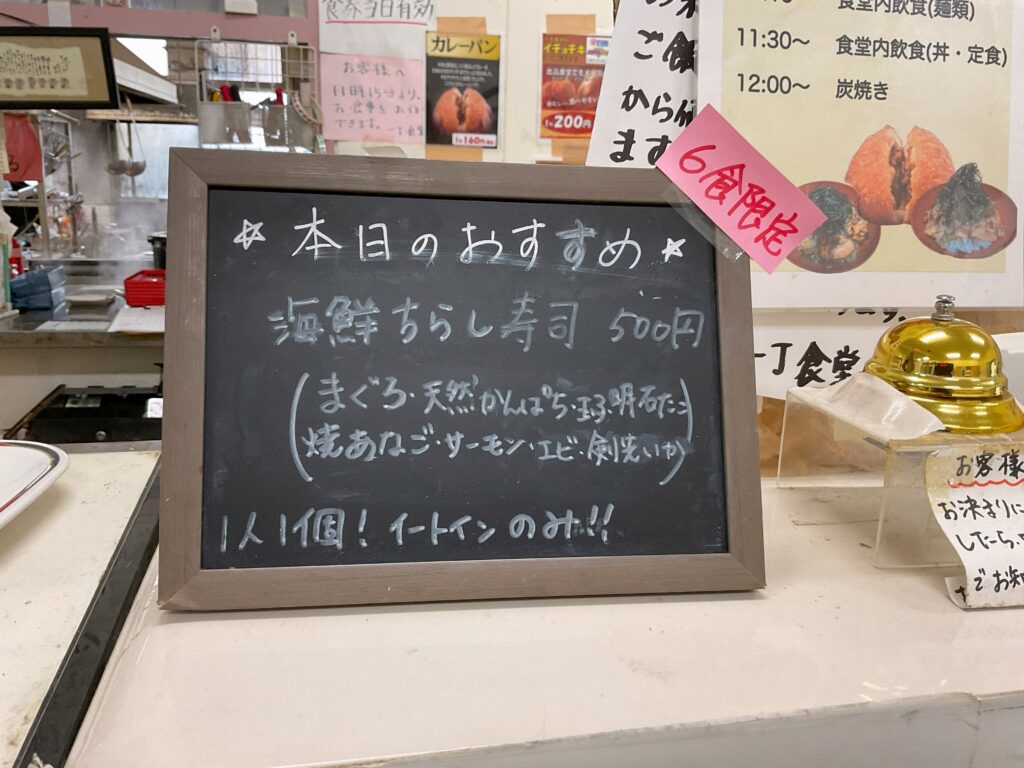 食券当日有効
お客様へ
11時15分より、
カレーパン
1ケ160円
イチョチキ
1ケ200円
ご飯
から
ます
食堂内飲食(麺類)
11:30～ 食堂内飲食(丼・定食)
12:00～ 炭焼き
6食限定
☆本日のおすすめ☆
海鮮ちらし寿司 500円
(まぐろ・天然かんぱち・玉子・明石たこ
焼あなご・サーモン・エビ・剣先いか)
1人1個! イートインのみ!!
丁食堂
お客様
お決まりに
したら、
でお知